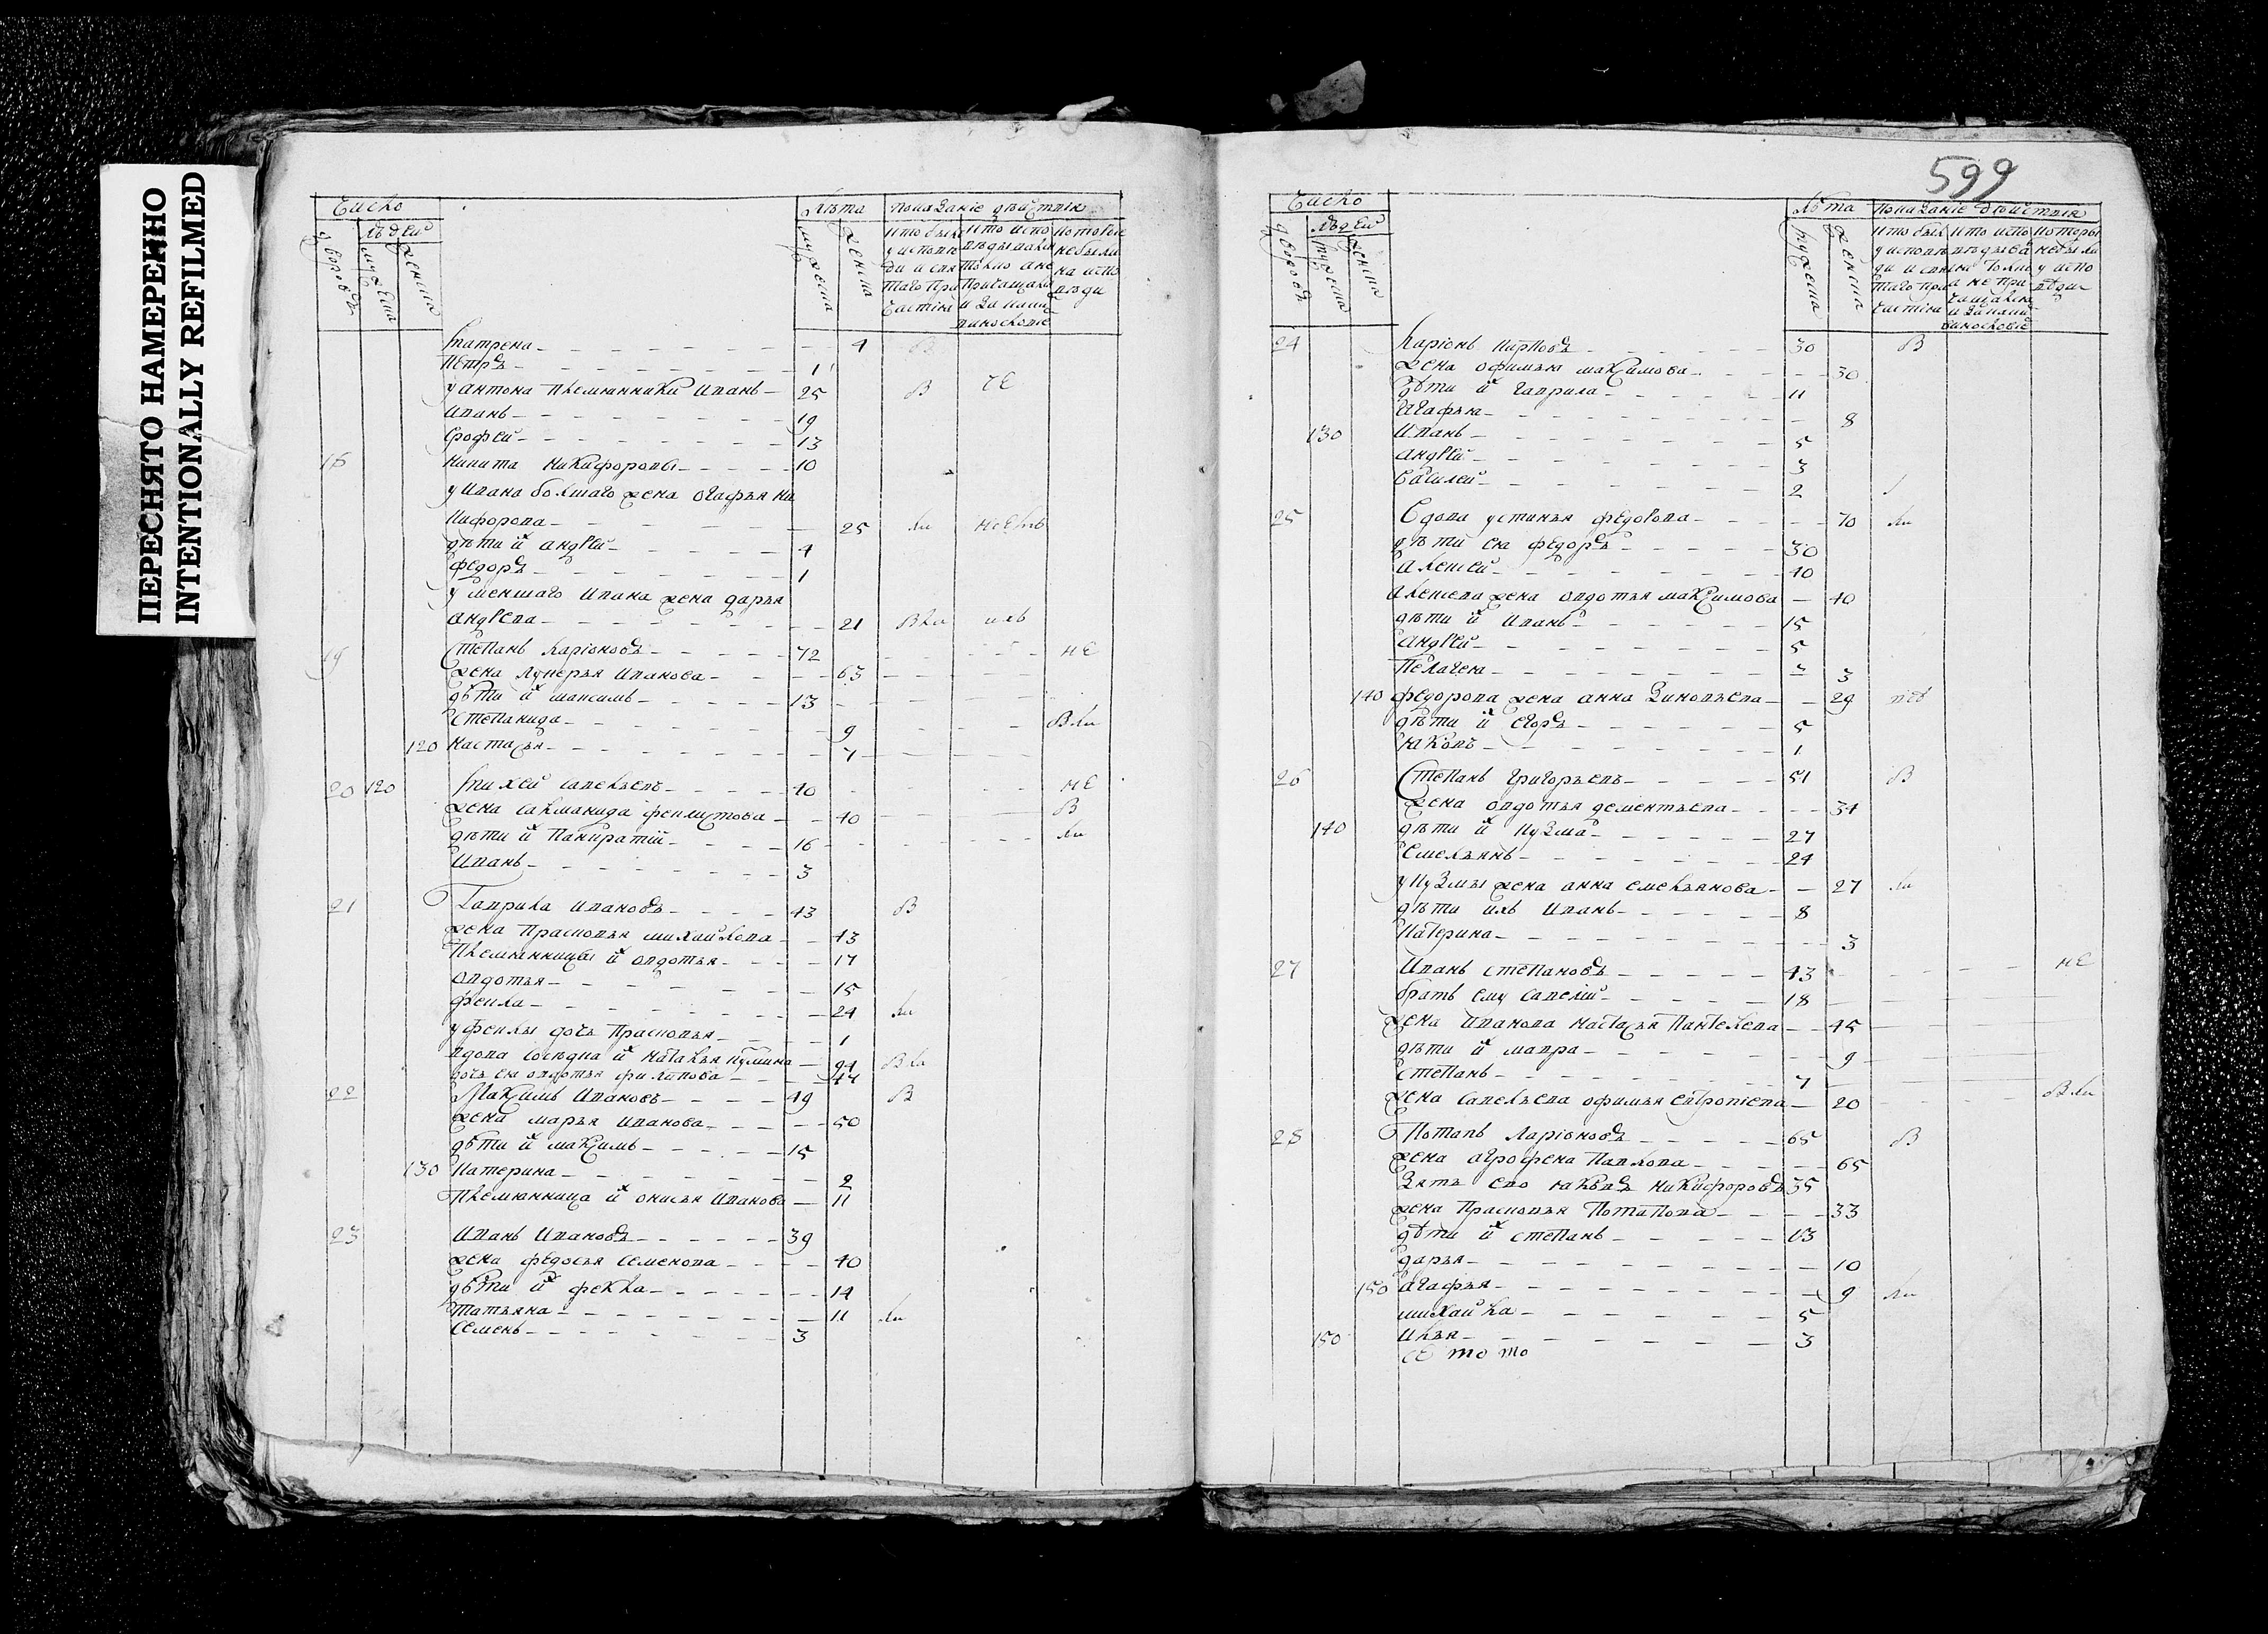 ПЕРЕСНЯТО НАМЕРЕННО
INTENTIONALLY REFILMED
Число
людей
дворовъ
мужеска
женска
Лѣта
мужеска
женска
Показаніе дѣйствія
кто были у исповѣди и святаго причастія
кто исповѣдывались токмо а не причащались и за какимъ виновствіемъ
которые не были на исповѣди
Катрена 4 В
Петръ 1
у антона племянники иванъ 25 В СЕ
иванъ 19
ерофей 13
18 никита никифоровы 10
у ивана болшаго жена огафья ни
кифорова 25 ли
дѣти их андрей 4
федоръ 1
у меншаго ивана жена дарья
андрева 21 Вли
19 степанъ ларіоновъ 72 НЕ
жена лукерья иванова 63
дѣти их максимъ 13
степанида 9 Вли
120 настасья 7
20 120 савельевъ 40 НЕ
жена фенистова 40 В
дѣти их панкратіи 16 ли
иванъ 3
21 Гаврила ивановъ 43 В
жена прасковья михайлова 43
племянницы их овдотья 17
овдотья 15
фекла 24 ли
у феклы дочь прасковья 1
вдова сосѣдка их наталья кузмина 94 Вли
дочь ея овдотья филипова 44
22 Максимъ ивановъ 49 В
жена марья иванова 50
дѣти их максимъ 15
130 катерина 2
племянница их онисья иванова 11
23 иванъ ивановъ 39
жена федосья семенова 40
дѣти их фекла 14
татьяна 11 ли
семенъ 3
599
Число
людей
дворовъ
мужеска
женска
Лѣта
мужеска
женска
Показаніе дѣйствія
кто были у исповѣди и святаго причастія
кто исповѣдывались токмо а не причащались и за какимъ виновствіемъ
которы не были у исповѣди
24 ларіонъ карповъ 30 В
жена офимья максимова 30
дѣти их гаврила 11
агафья 8
130 иванъ 5
андрей 3
василей 2
25 вдова устинья федорова 70 ли
дѣти ея федоръ 30
алексей 40
алексева жена овдотья максимова 40
дѣти их иванъ 15
андрей 5
пелагея 3
140 федорова жена анна зиновьева 29
дѣти их егоръ 5
яковъ 1
26 Степанъ григорьевъ 51 В
жена овдотья дементьева 34
140 дѣти их кузма 27
емельянъ 24
у кузмы жена анна емельянова 27 ли
дѣти ихъ иванъ 8
катерина 3
27 Иванъ степановъ 43 НЕ
братъ ему савелій 18
жена иванова настасья пантелева 45
дѣти их мавра 9
степанъ 7
жена савельева офимья 20 Вли
28 Потапъ ларіоновъ 65 В
жена агрофена павлова 65
зять ево никифоровъ 35
жена прасковья потапова 33
дѣти их степанъ 13
дарья 10
150 агафья 9 ли
михайла 5
150 илья 3
се то то